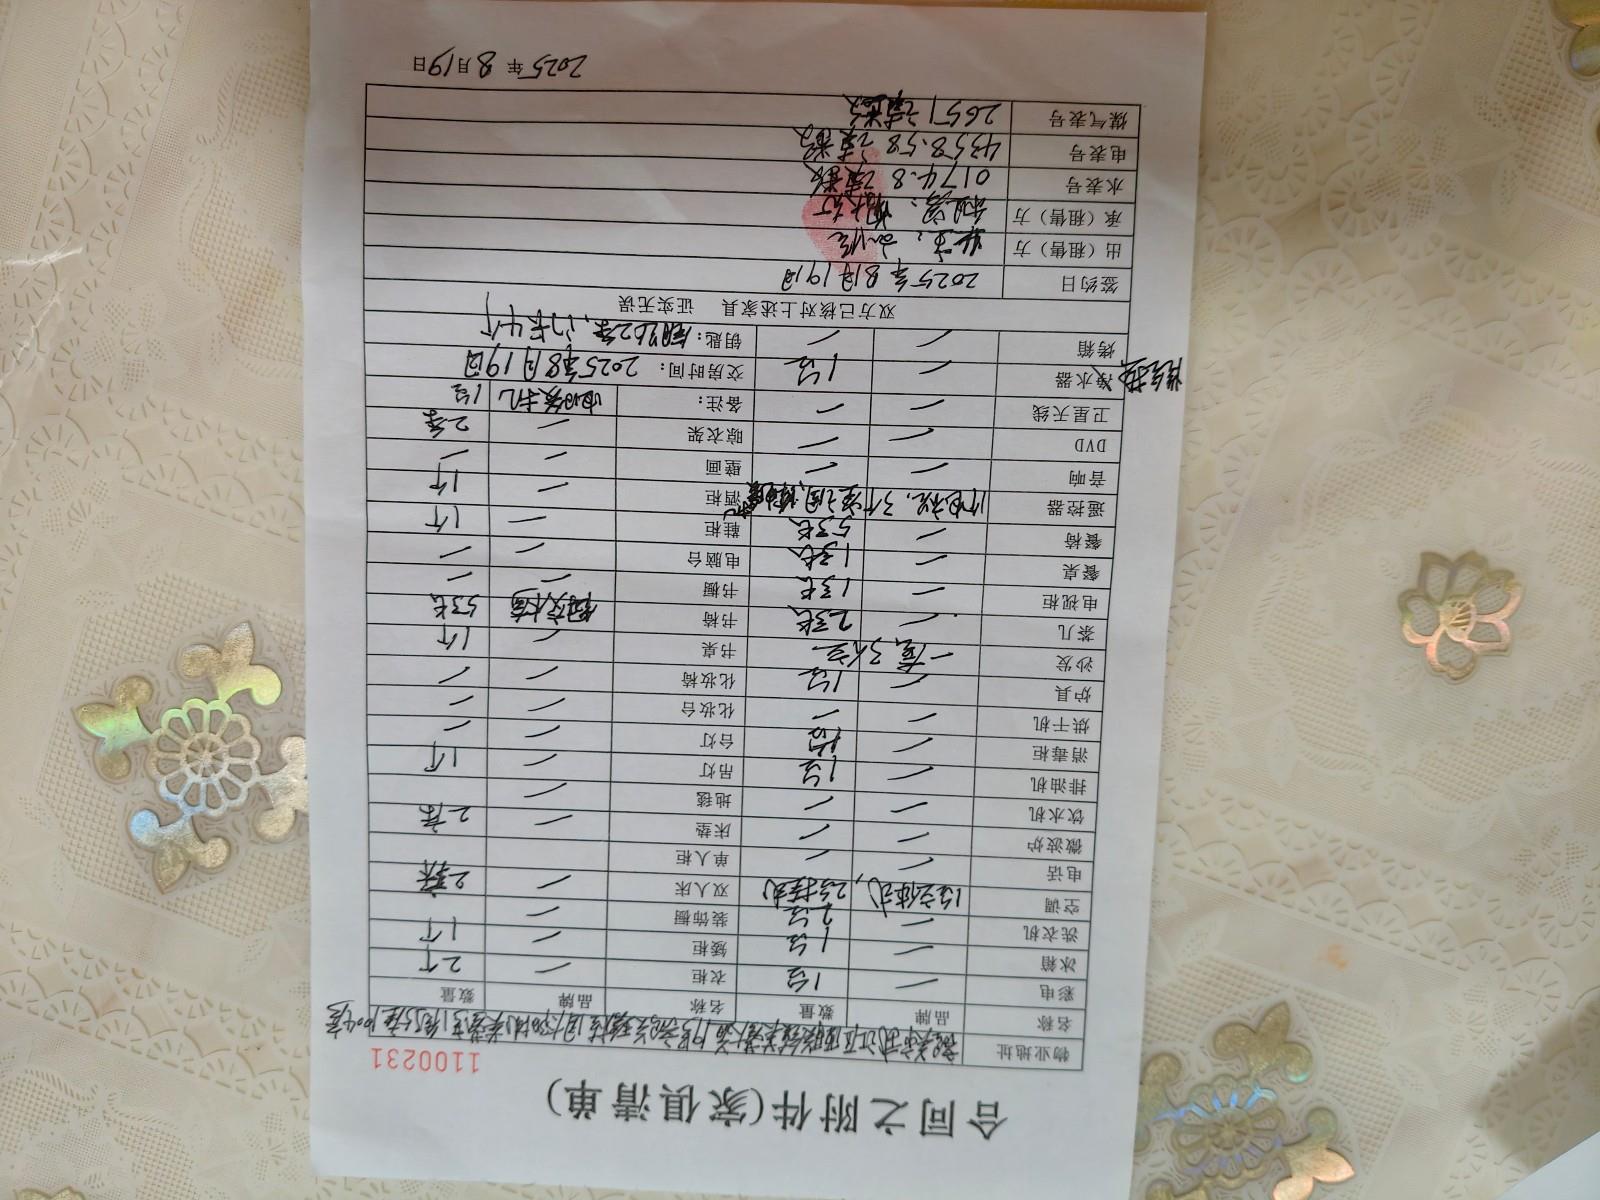 合同之附件(家俱清单)
1100231
物业地址
名称 品牌 数量 名称 品牌 数量
彩电 / 1台 衣柜 / 2个
冰箱 / 1台 矮柜 / 1个
洗衣机 / 2台 装饰橱 /
空调 1台立体式, 2台挂式 双人床 / 2张
电话 / / 单人柜
微波炉 / / 床垫 / 2床
饮水机 / / 地毯 /
排油机 / 1台 吊灯 / 1个
消毒柜 / 1台 台灯 / /
烘干机 / / 化妆台 / /
炉具 / 1台 化妆椅 / /
沙发 一套3人座 书桌 / 1个
茶几 / 2张 书椅 5张
电视柜 / 1张 书橱 / /
餐桌 / 1张 电脑台 / /
餐椅 / 5张 鞋柜 / 1个
遥控器 1个电视, 3个空调, 酒柜 / 1个
音响 / / 壁画 / /
DVD / / 晾衣架 / 2条
卫星天线 / / 备注: 1台
净水器 / 1台 交房时间: 2025年8月19日
烤箱 / / 钥匙: 门卡4个
双方已核对上述家具 证实无误
签约日 2025年8月19日
出(租售)方 业主:
承(租售)方 租客:
水表号 0174.8 读数
电表号 4358.58 读数
煤气表号 2651 读数
2025年8月19日